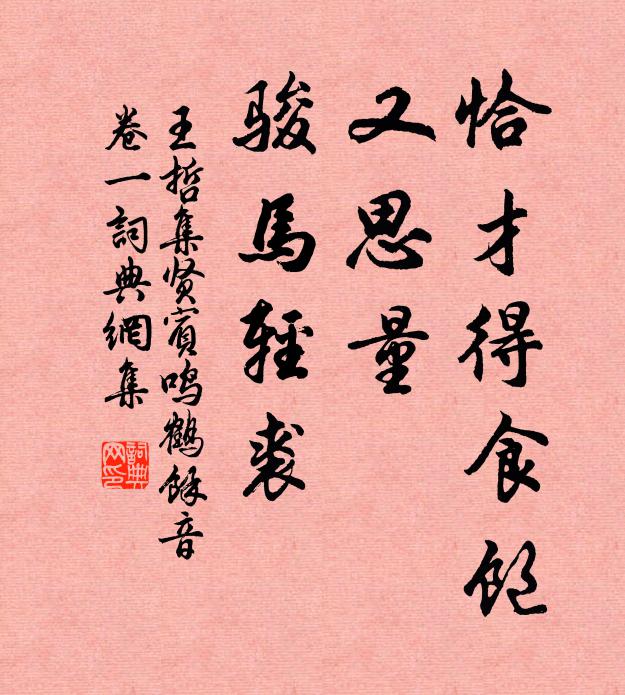 恰才得食飽
又思量
駿馬輕裘
王哲集贤賓鸣鶴餘音
卷一詞典網集
詞典網印